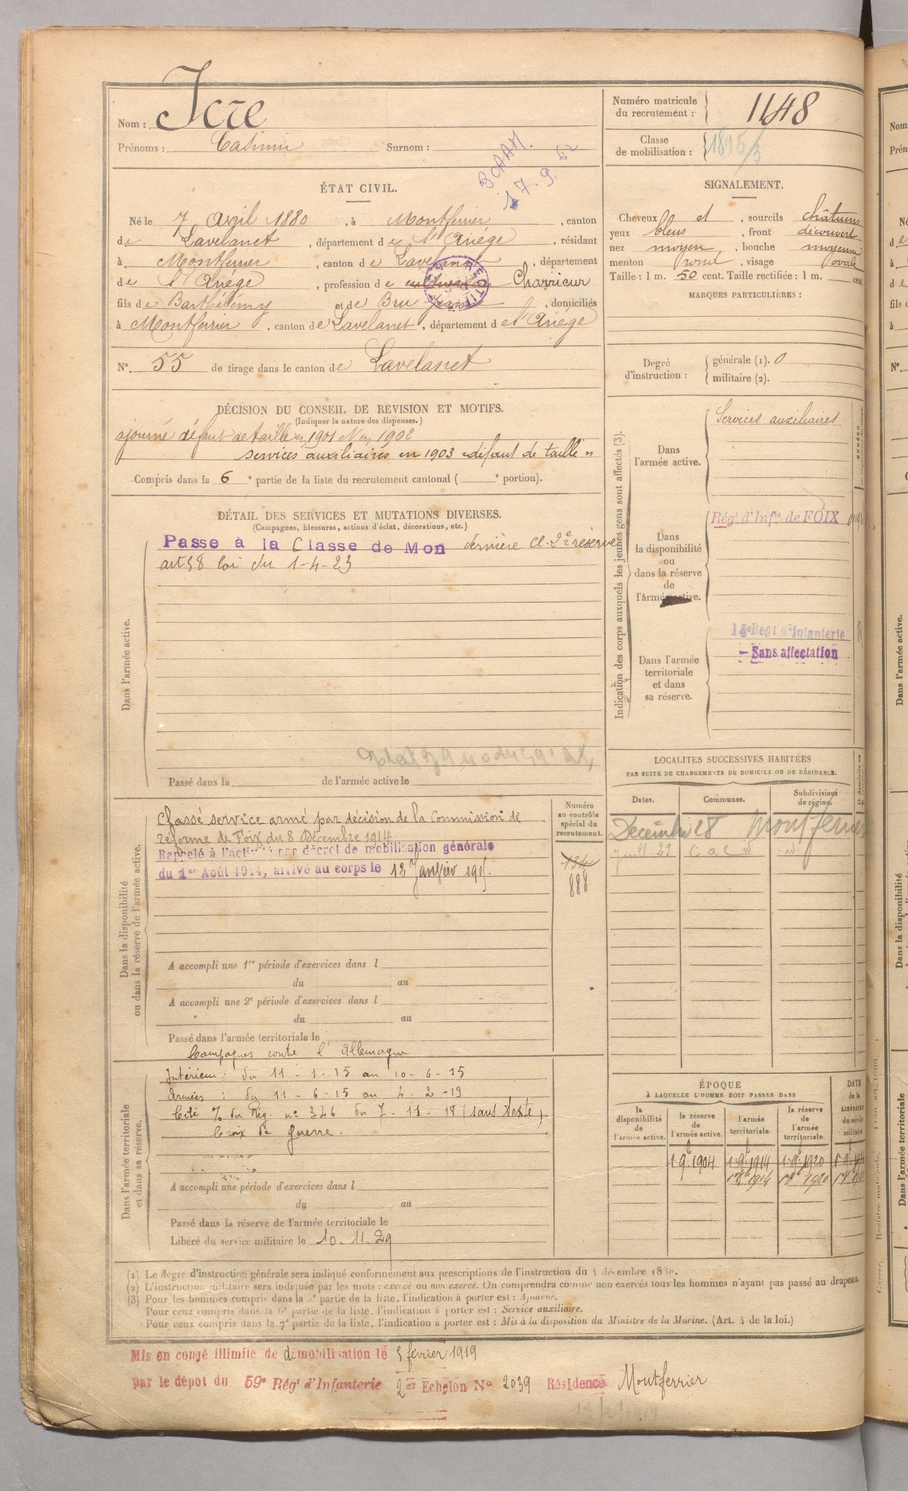 Nom : Icre
Prénoms : Casimir Surnom :
ÉTAT CIVIL.
Né le 7 Avril 1880, à Montferrier, canton
de Lavelanet, département de l'Ariège, résidant
à Montferrier, canton de Lavelanet, département
de l'Ariège, profession de cultivateur Charrieur
fils de Barthélémy et de Bru, domiciliés
à Montferrier, canton de Lavelanet, département de l'Ariège
N° 55 de tirage dans le canton de Lavelanet
DÉCISION DU CONSEIL DE REVISION ET MOTIFS.
(Indiquer la nature des dispenses.)
ajourné défaut de taille 1901 1902
services auxiliaires en 1903 "défaut de taille"
Compris dans la 6e partie de la liste du recrutement cantonal ( e portion).
DÉTAIL DES SERVICES ET MUTATIONS DIVERSES.
(Campagnes, blessures, actions d'éclat, décorations, etc.)
Dans l'armée active.
Passe à la Classe de Mon dernière Cl. 2e réserve
art 58 loi du 1-4-23
Passé dans la de l'armée active le
Dans la disponibilité ou dans la réserve de l'armée active.
Classé service armé par décision de la Commission de
réforme de Foix du 8 Décembre 1914
Rappelé à l'activité par décret de mobilisation générale
du 1er Août 1914, arrivé au corps le 12 Janvier 1915.
A accompli une 1re période d'exercices dans l
du au
A accompli une 2e période d'exercices dans l
du au
Passé dans l'armée territoriale le
Numéro au contrôle spécial du recrutement.
888
Dans l'armée territoriale et dans sa réserve.
Campagnes contre l'Allemagne
Intérieur : du 11-1-15 au 10-6-15
Armées : du 11-6-15 au 4-2-19
Cité du Rég. n° 346 du 7-11-18 (sans texte)
Croix de guerre.
A accompli une période d'exercices dans l
du au
Passé dans la réserve de l'armée territoriale le
Libéré du service militaire le 10-11-29
Numéro matricule du recrutement : 1148
Classe de mobilisation :
SIGNALEMENT.
Cheveux et, sourcils châtains
yeux bleus, front découvert
nez moyen, bouche moyenne
menton rond, visage ovale
Taille : 1 m. 50 cent. Taille rectifiée : 1 m. cent.
MARQUES PARTICULIÈRES :
Degré d'instruction : générale (1). 0
militaire (2).
Indication des corps auxquels les jeunes gens sont affectés (3).
Dans l'armée active.
Services auxiliaires
Dans la disponibilité ou dans la réserve de l'armée active.
Régt d'Infie de FOIX
Dans l'armée territoriale et dans sa réserve.
Sans affectation
LOCALITÉS SUCCESSIVES HABITÉES
PAR SUITE DE CHANGEMENTS DE DOMICILE OU DE RÉSIDENCE.
Dates. Communes. Subdivisions de région.
Décembre 28 Montferrier
ÉPOQUE
À LAQUELLE L'HOMME DOIT PASSER DANS
la disponibilité de l'armée active. la réserve de l'armée active. l'armée territoriale. la réserve de l'armée territoriale. DATE de la LIBÉRATION du service militaire.
1-9-1904 1-9-1914 1-9-1920
(1) Le degré d'instruction générale sera indiqué conformément aux prescriptions de l'instruction du
(2) L'instruction militaire sera indiquée par les mots : exercé ou non exercé. On comprendra comme non exercés tous les hommes n'ayant pas passé au drapeau.
(3) Pour les hommes compris dans la 5e partie de la liste, l'indication à porter est : Ajourné.
Pour ceux compris dans la 6e partie de la liste, l'indication à porter est : Service auxiliaire.
Pour ceux compris dans la 7e partie de la liste, l'indication à porter est : Mis à la disposition du Ministre de la Marine. (Art. 4 de la loi.)
Mis en congé illimité de démobilisation le 5 février 1919
par le dépôt du 59e Régt d'Infanterie 2e Echelon N° 2039 Résidence Montferrier